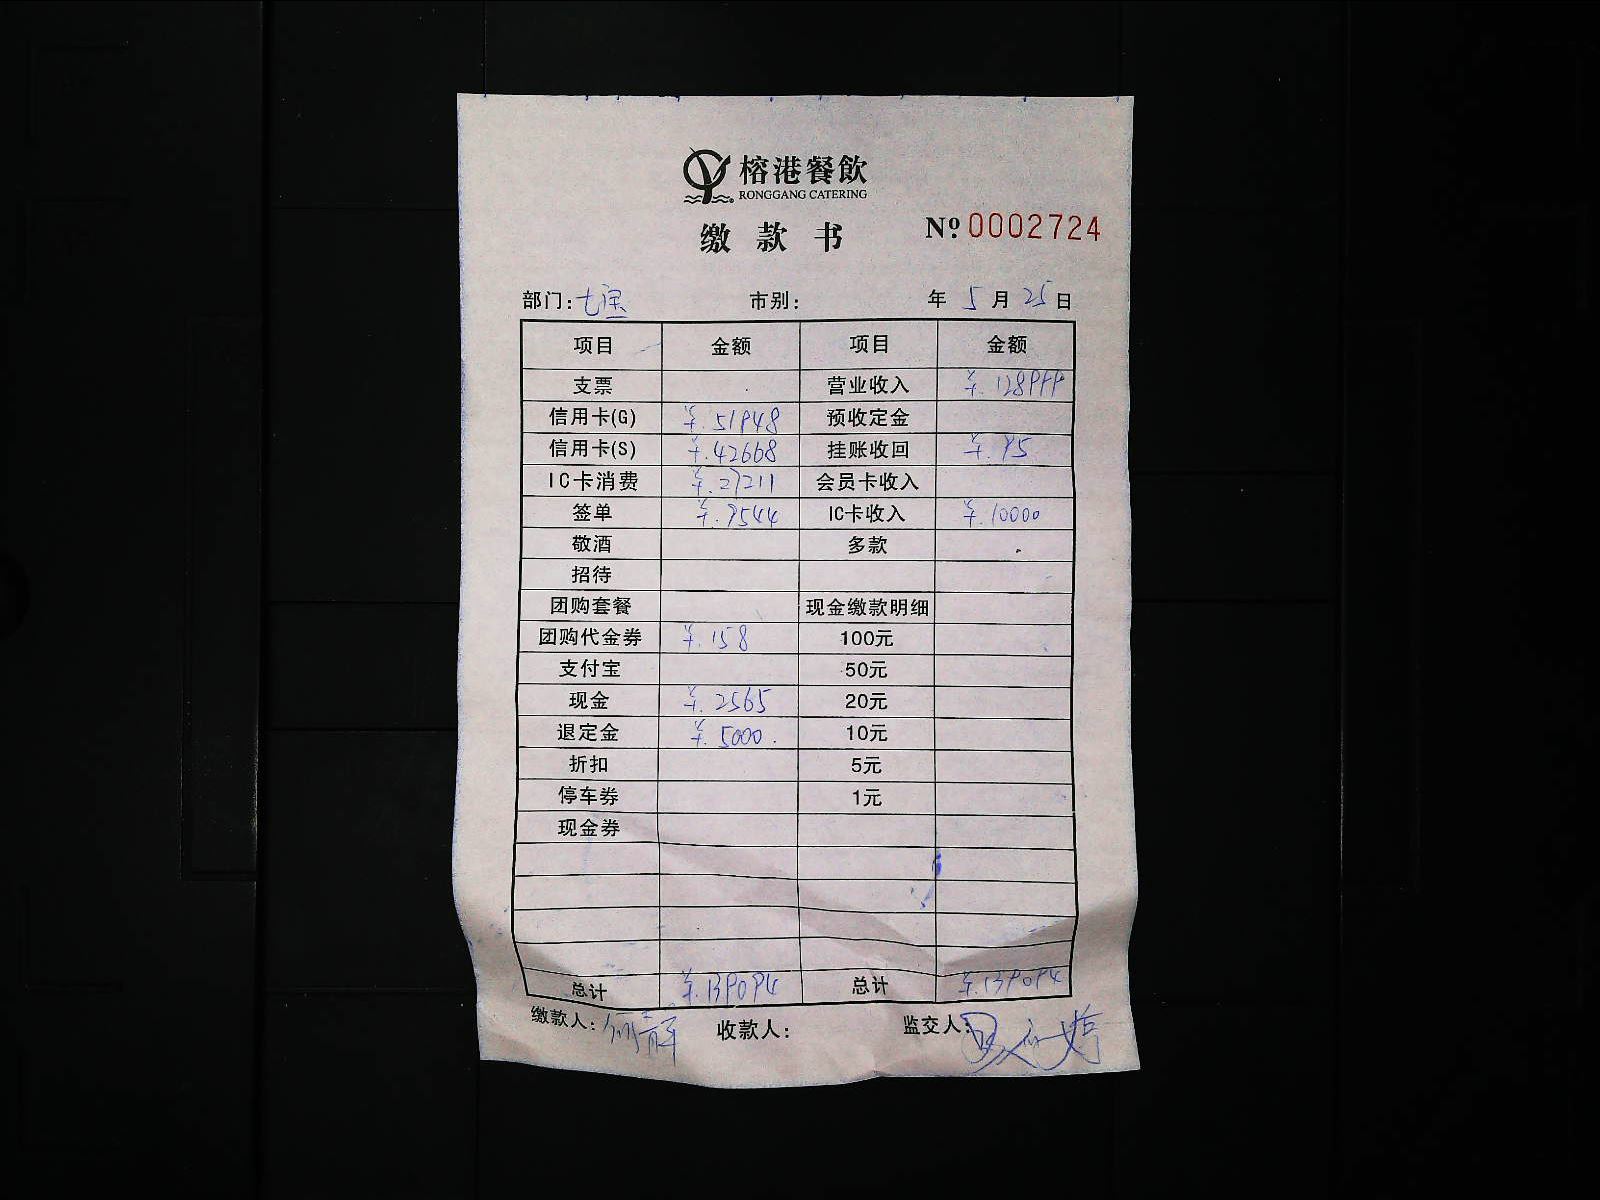 榕港餐飲
RONGGANG CATERING
缴款书 Nº 0002724
部门: 七宝 市别: 年 5 月 25 日
项目 金额 项目 金额
支票 营业收入 ¥.128999
信用卡(G) ¥.51948 预收定金
信用卡(S) ¥.42668 挂账收回 ¥.95
IC卡消费 ¥.27211 会员卡收入
签单 ¥.9544 IC卡收入 ¥.10000
敬酒 多款
招待
团购套餐 现金缴款明细
团购代金券 ¥.158 100元
支付宝 50元
现金 ¥.2565 20元
退定金 ¥.5000. 10元
折扣 5元
停车券 1元
现金券
总计 ¥.139094 总计 ¥.139094
缴款人: 何静 收款人: 监交人: